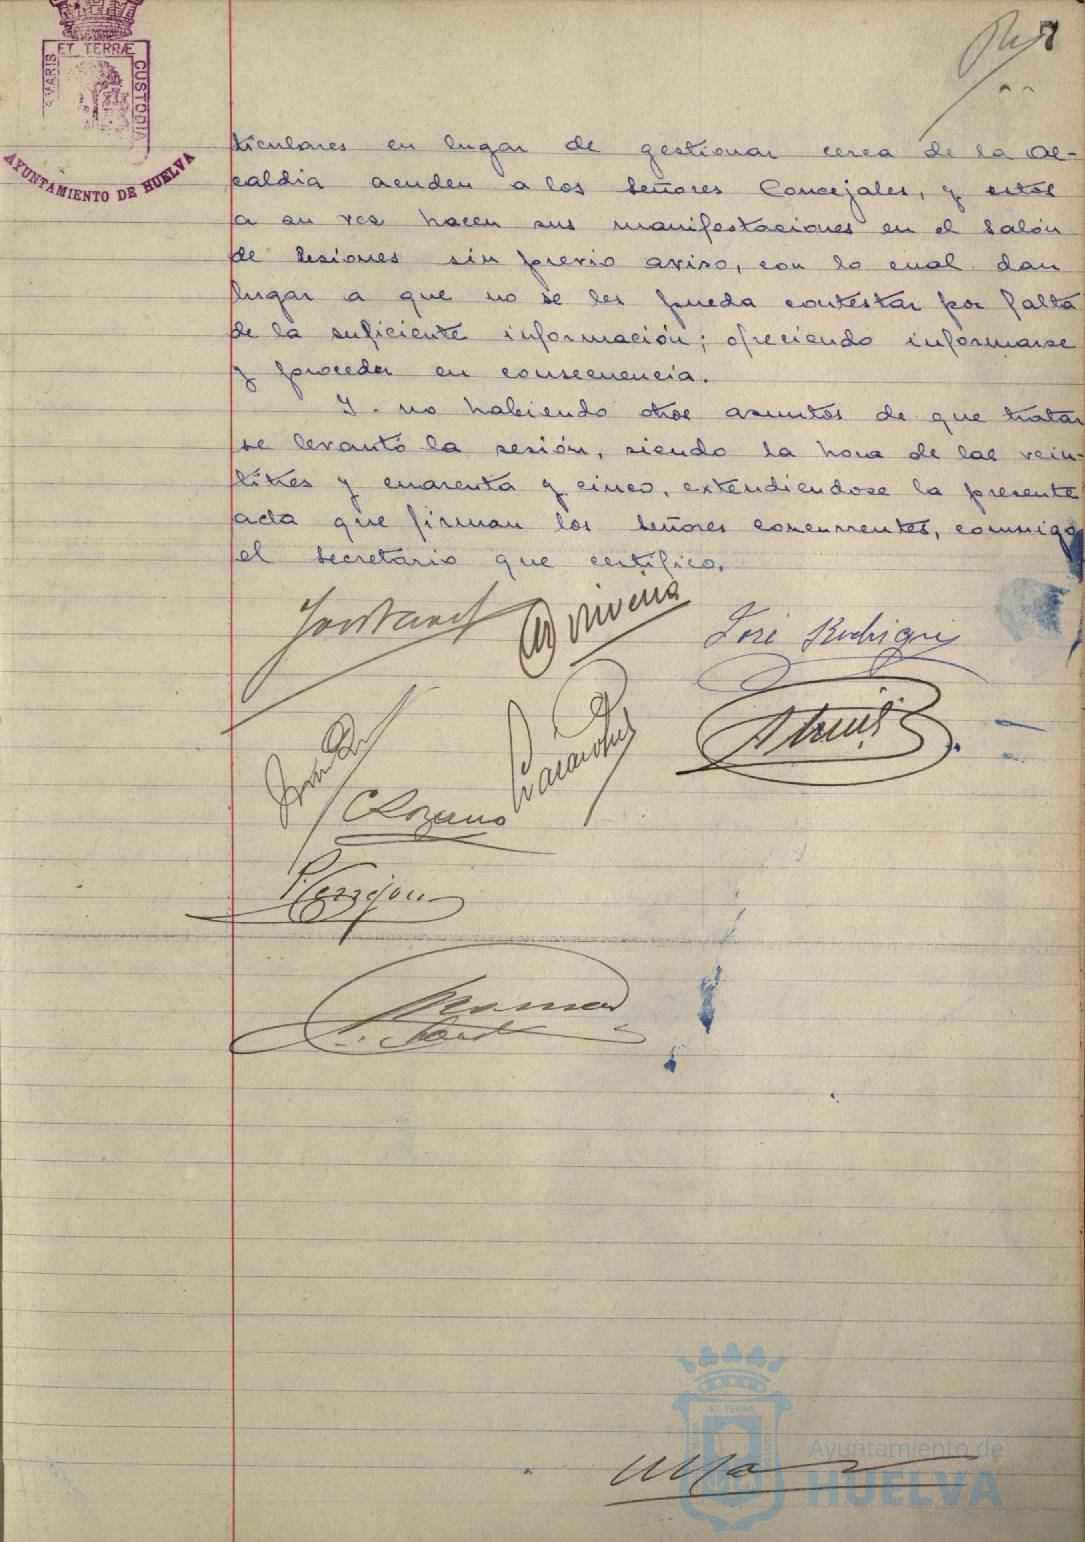 7
ET TERRÆ
MARIS
CUSTODIA
AYUNTAMIENTO DE HUELVA
ticulares en lugar de gestionar cerca de la Al-
caldia acuden a los señores Concejales, y estos
a su vez hacen sus manifestaciones en el Salón
de sesiones sin previo aviso, con lo cual dan
lugar a que no se les pueda contestar por falta
de la suficiente información; ofreciendo informarse
y proceder en consecuencia.
Y no habiendo otros asuntos de que tratar
se levantó la sesión, siendo la hora de las vein-
titres y cuarenta y cinco, extendiendose la presente
acta que firman los señores concurrentes, conmigo
el secretario que certifico.
José Rodrigu
C Lozano
P. Cerrejon
ET TERRÆ
Ayuntamiento de
HUELVA